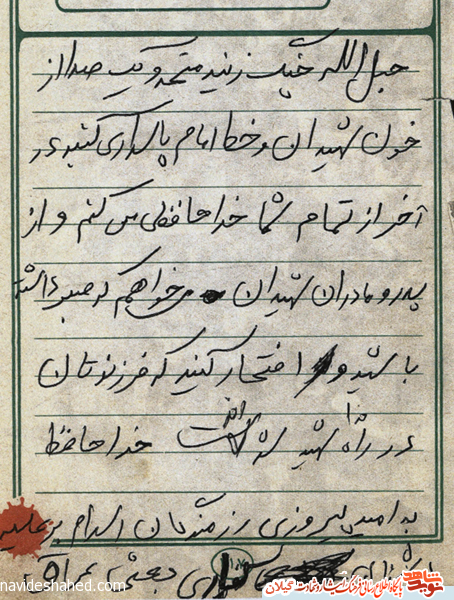 حبل الله چنگ زنید متحد و یک صدا از
خون شهیدان و خط امام پاسداری کنید در
آخر از تمام شما خداحافظی می کنم و از
پدر و مادران شهیدان می خواهم که صبر داشته
باشید و افتخار کنید که فرزندتان
در راه خدا شهید شده است خداحافظ
به امید پیروزی رزمندگان اسلام بر علیه
navideshahed.com
نوید شاهد